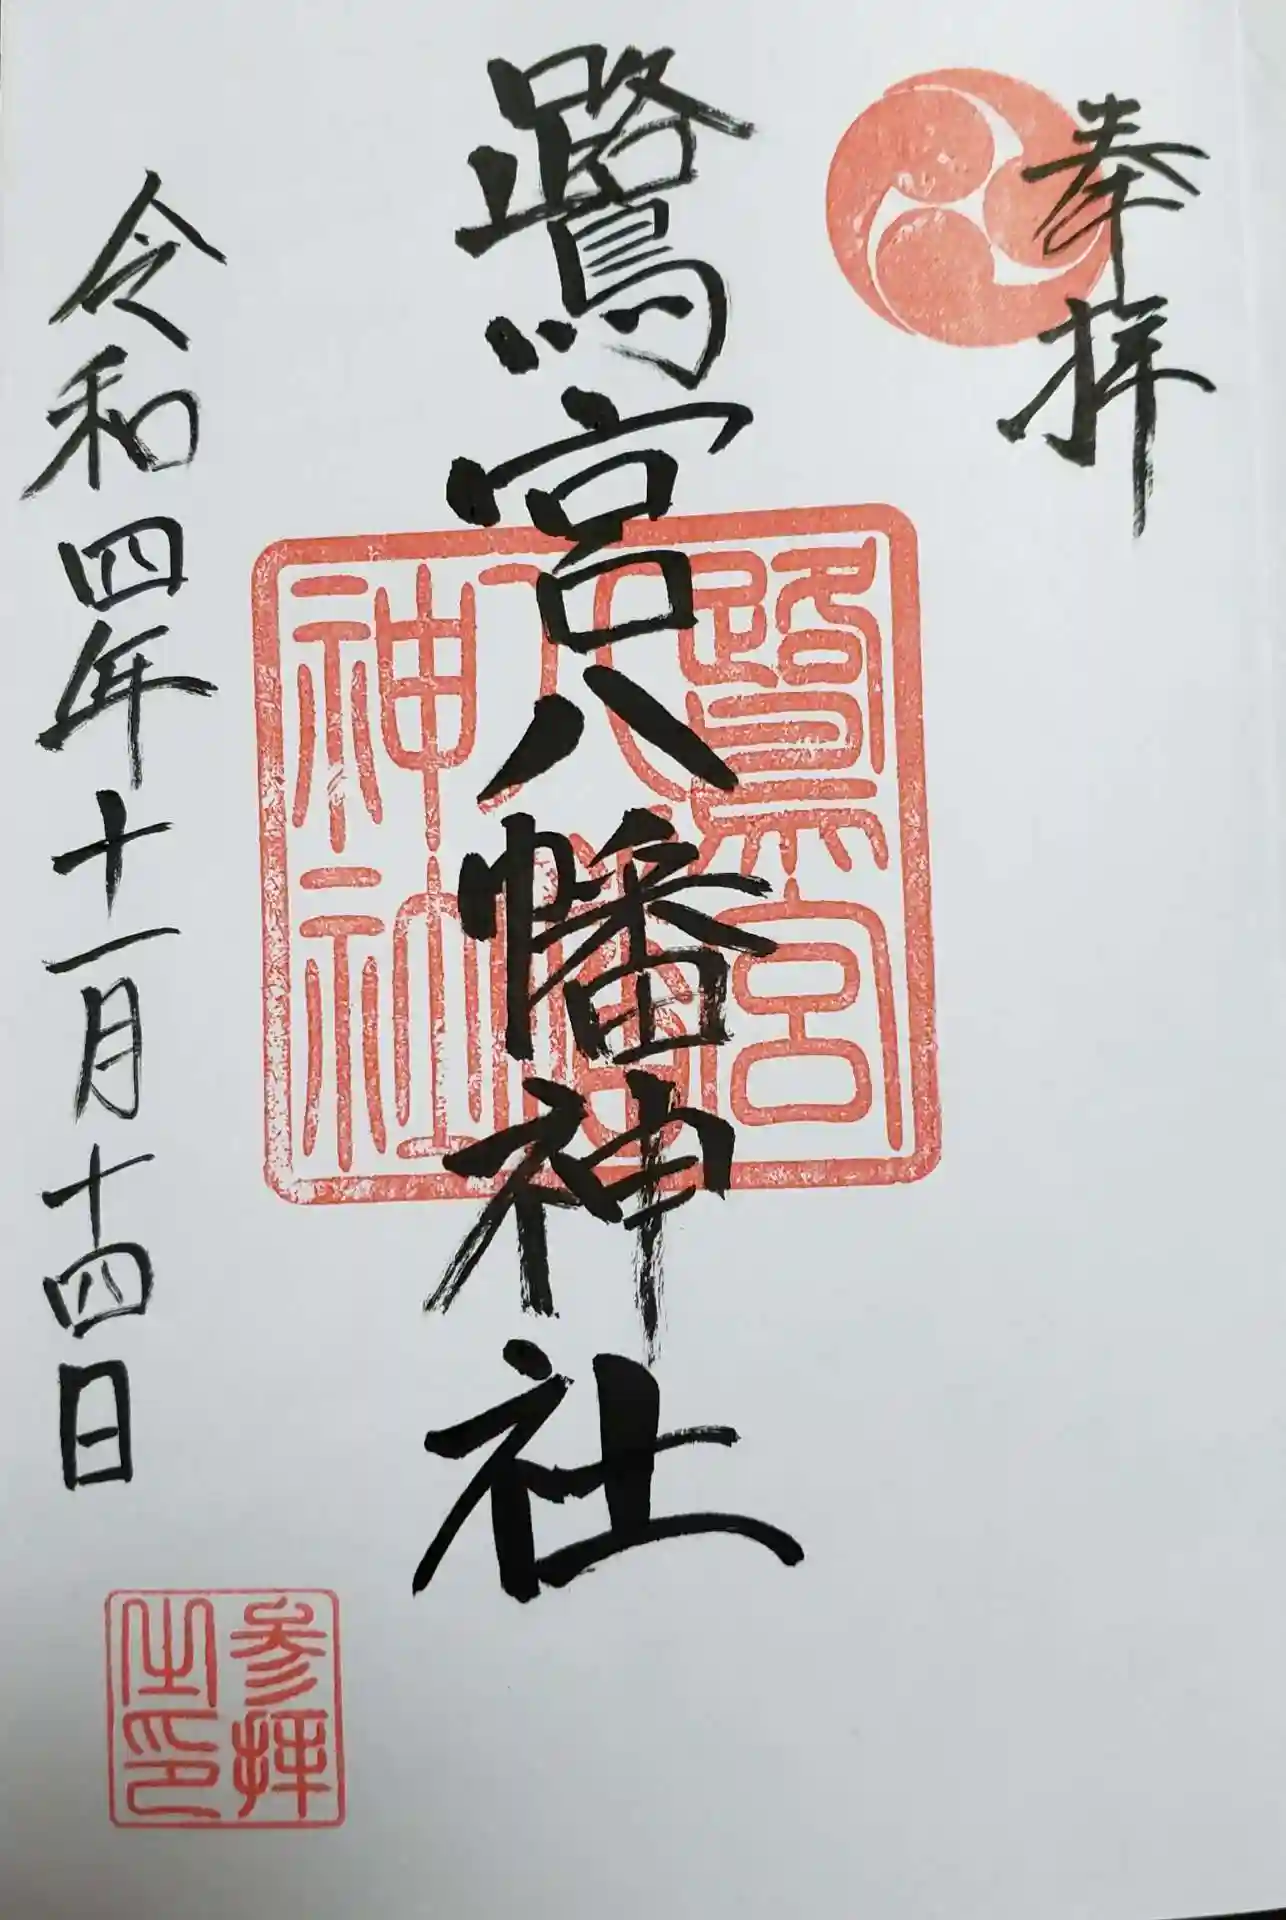 奉拝
鷺宮八幡神社
令和四年十一月十四日
鷺宮
八幡
神社
参拝
之印